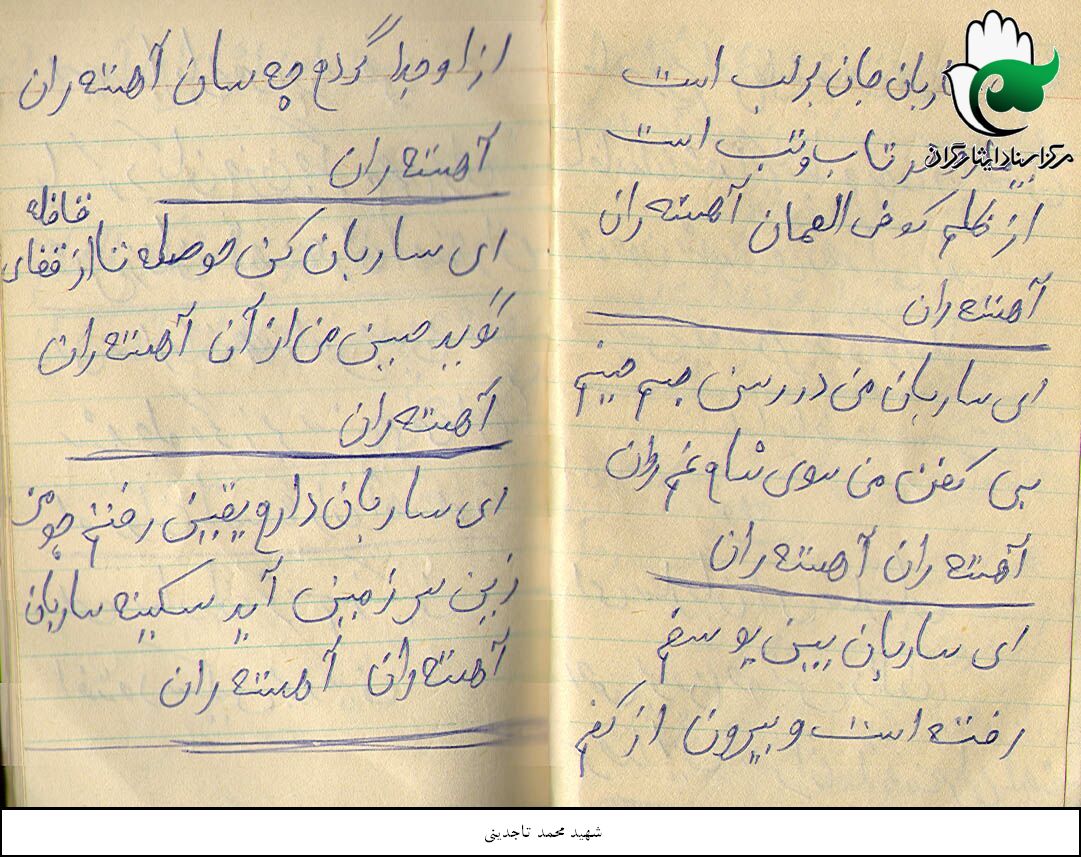 مرکز اسناد ایثارگران
جان بر لب است
در تاب و تب است
از ظلم کوفی العمان آهسته ران
آهسته ران
ای ساربان من در رسن جسم حسینم
بی کفن من سوی شام غم روان
آهسته ران آهسته ران
ای ساربان ببین یوسفم
رفته است و بیرون از کفم
از او جدا گردم چه سان آهسته ران
آهسته ران
ای ساربان کن حوصله تا از قفای قافله
گوید حسین من از آن آهسته ران
آهسته ران
ای ساربان دارم یقین رفتم چو من
زین سرزمین آید سکینه ساربان
آهسته ران آهسته ران
شهید محمد تاجدینی